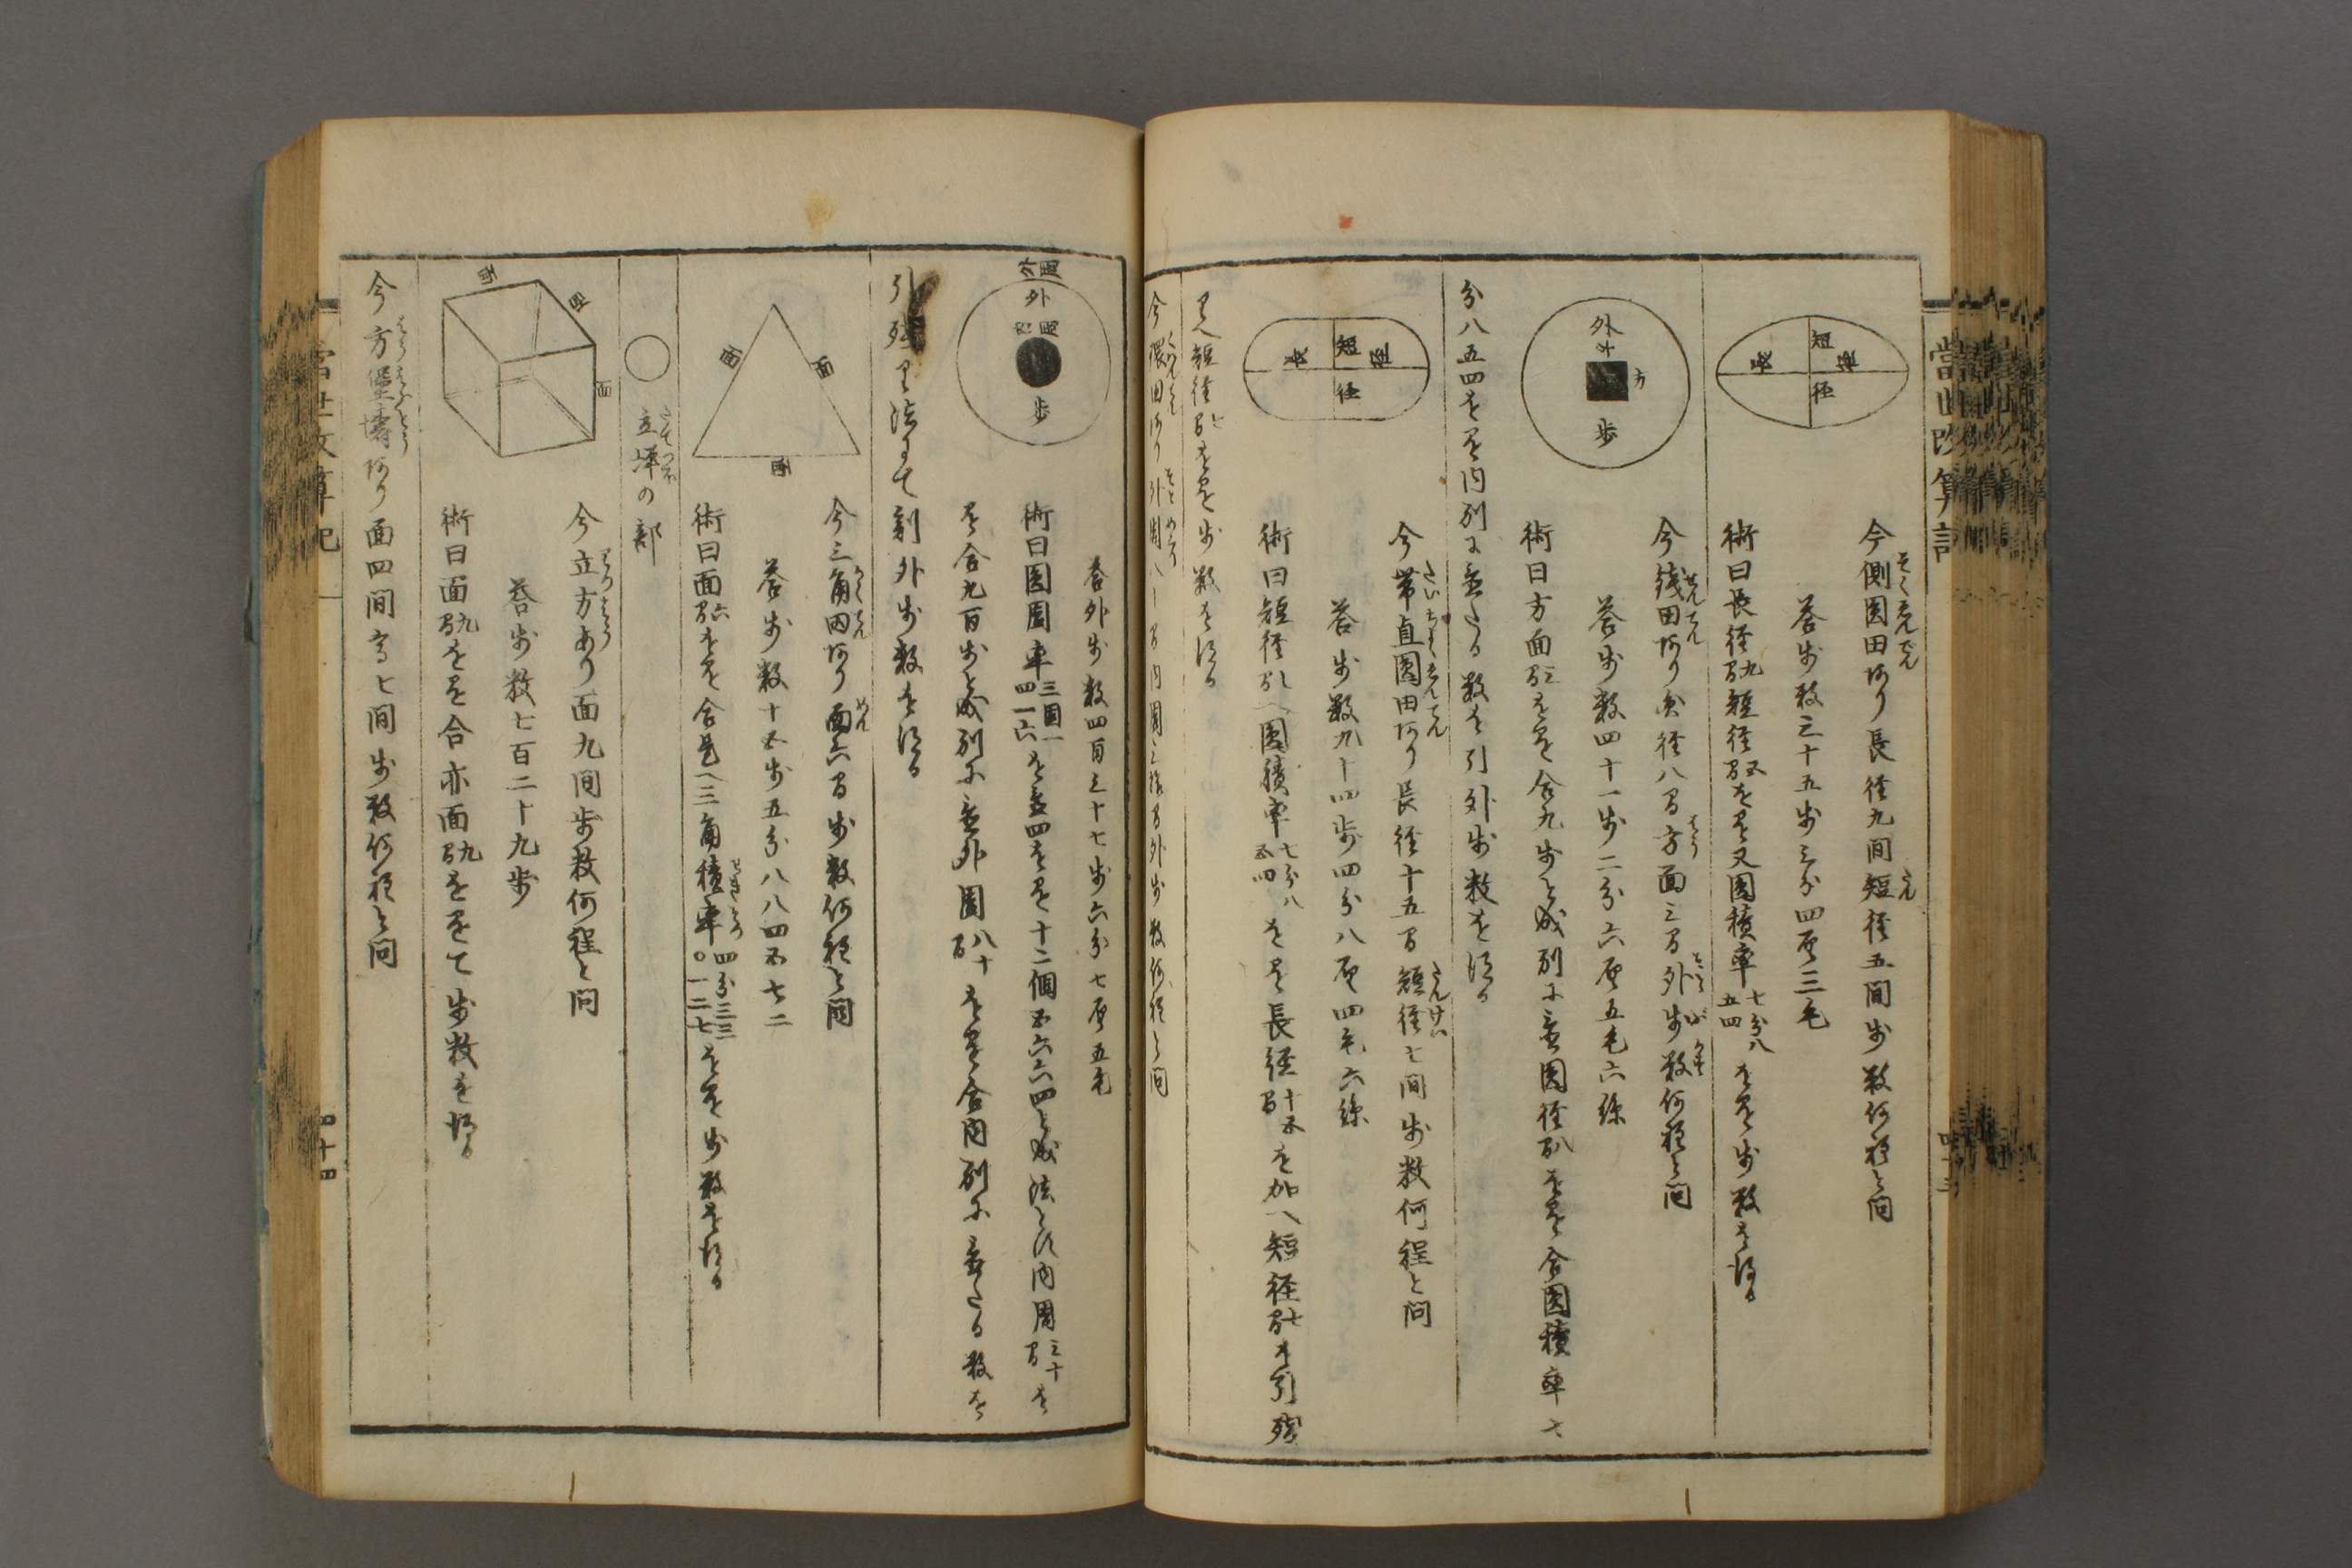 今側圓田有り長径九間短径五間歩数何程と問
答歩数三十五歩三分四厘三毛
術曰長径九間短径五間をかけ又圓積率七分八五四をかけ歩数を得る
今銭田有り圓径八間方面三間外歩数何程と問
答歩数四十一歩二分六厘五毛六絲
術曰方面三間をかけ合九歩と成別に置圓径八間をかけ合圓積率七
分八五四をかけ内別に置たる数を引外歩数を得る
今帯直圓田有り長径十五間短径七間歩数何程と問
答歩数九十四歩四分八厘四毛六絲
術曰短径 圓積率七分八五四をかけ長径十五間を加へ短径七間を引残
りへ短径七間をかけ歩数を得る
今環田有り外周八十間内周三十間外歩数何程と問
當世改算記
四十三
短径
長径
外歩
方
短径
長径
答外歩数四百三十七歩六分七厘五毛
術曰圓周率三一四一六を置四をかけ十二個五六六四と成法とす内周三十間を
かけ合九百歩と成別に置外周八十間をかけ合内別に置たる数を
引残り法にて割外歩数を得る
今三角田有り面六間歩数何程と問
答歩数十五歩五分八八四五七二
術曰面六間をかけ合是へ三角積率四分三三〇一二七をかけ歩数を得る
○立坪の部
今立方あり面九間歩数何程と問
答歩数七百二十九歩
術曰面九間をかけ合亦面九間をかけて歩数を得る
今方堡壔有り面四間高七間歩数何程と問
當世改算記
四十四
外周
外
内周
歩
面
面
面
面
面
面